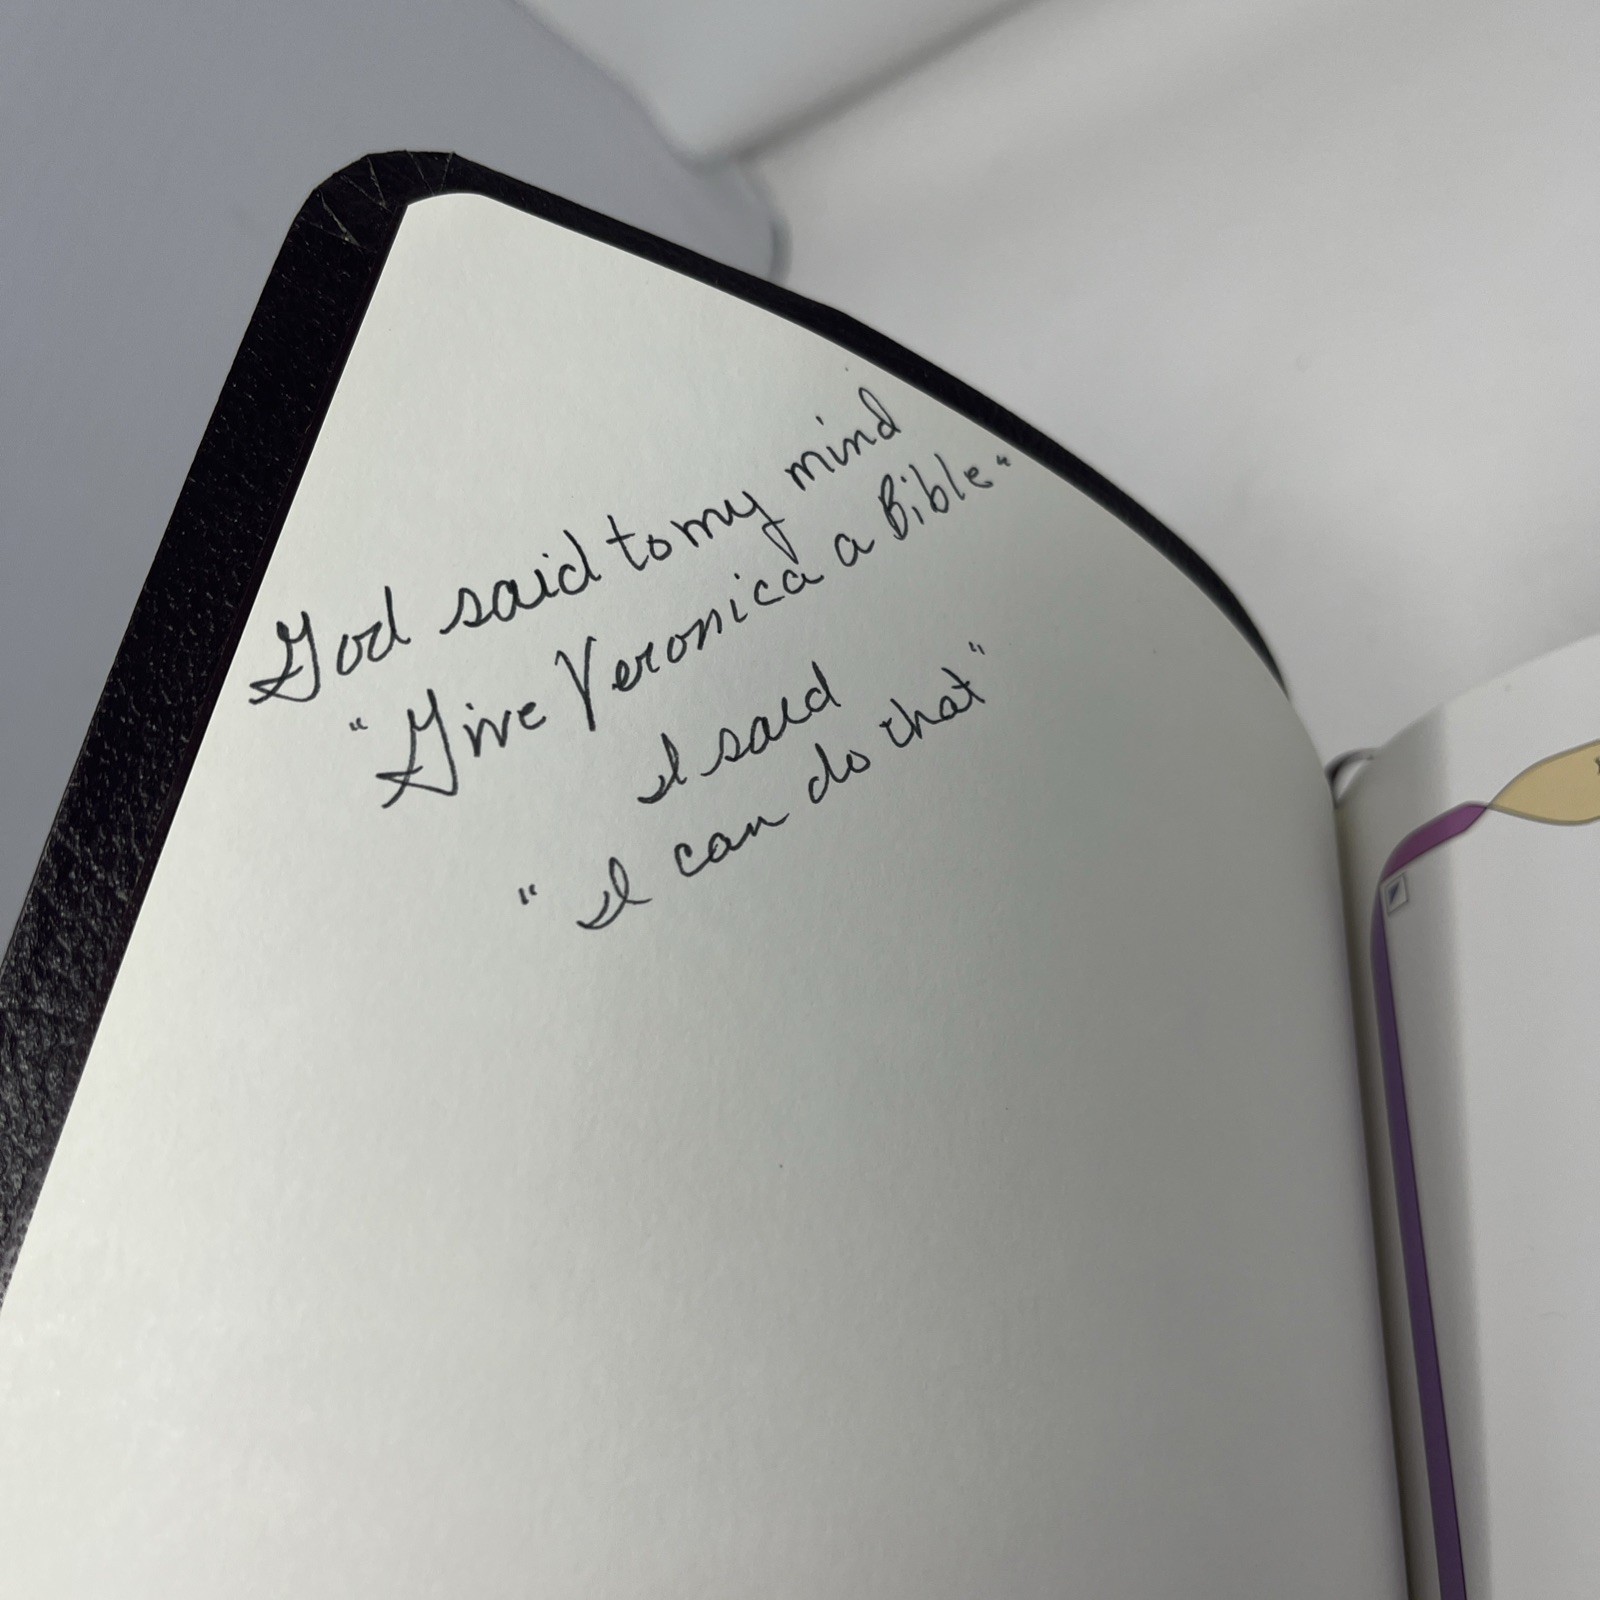 God said to my mind
"Give Veronica a Bible"
I said
"I can do that"